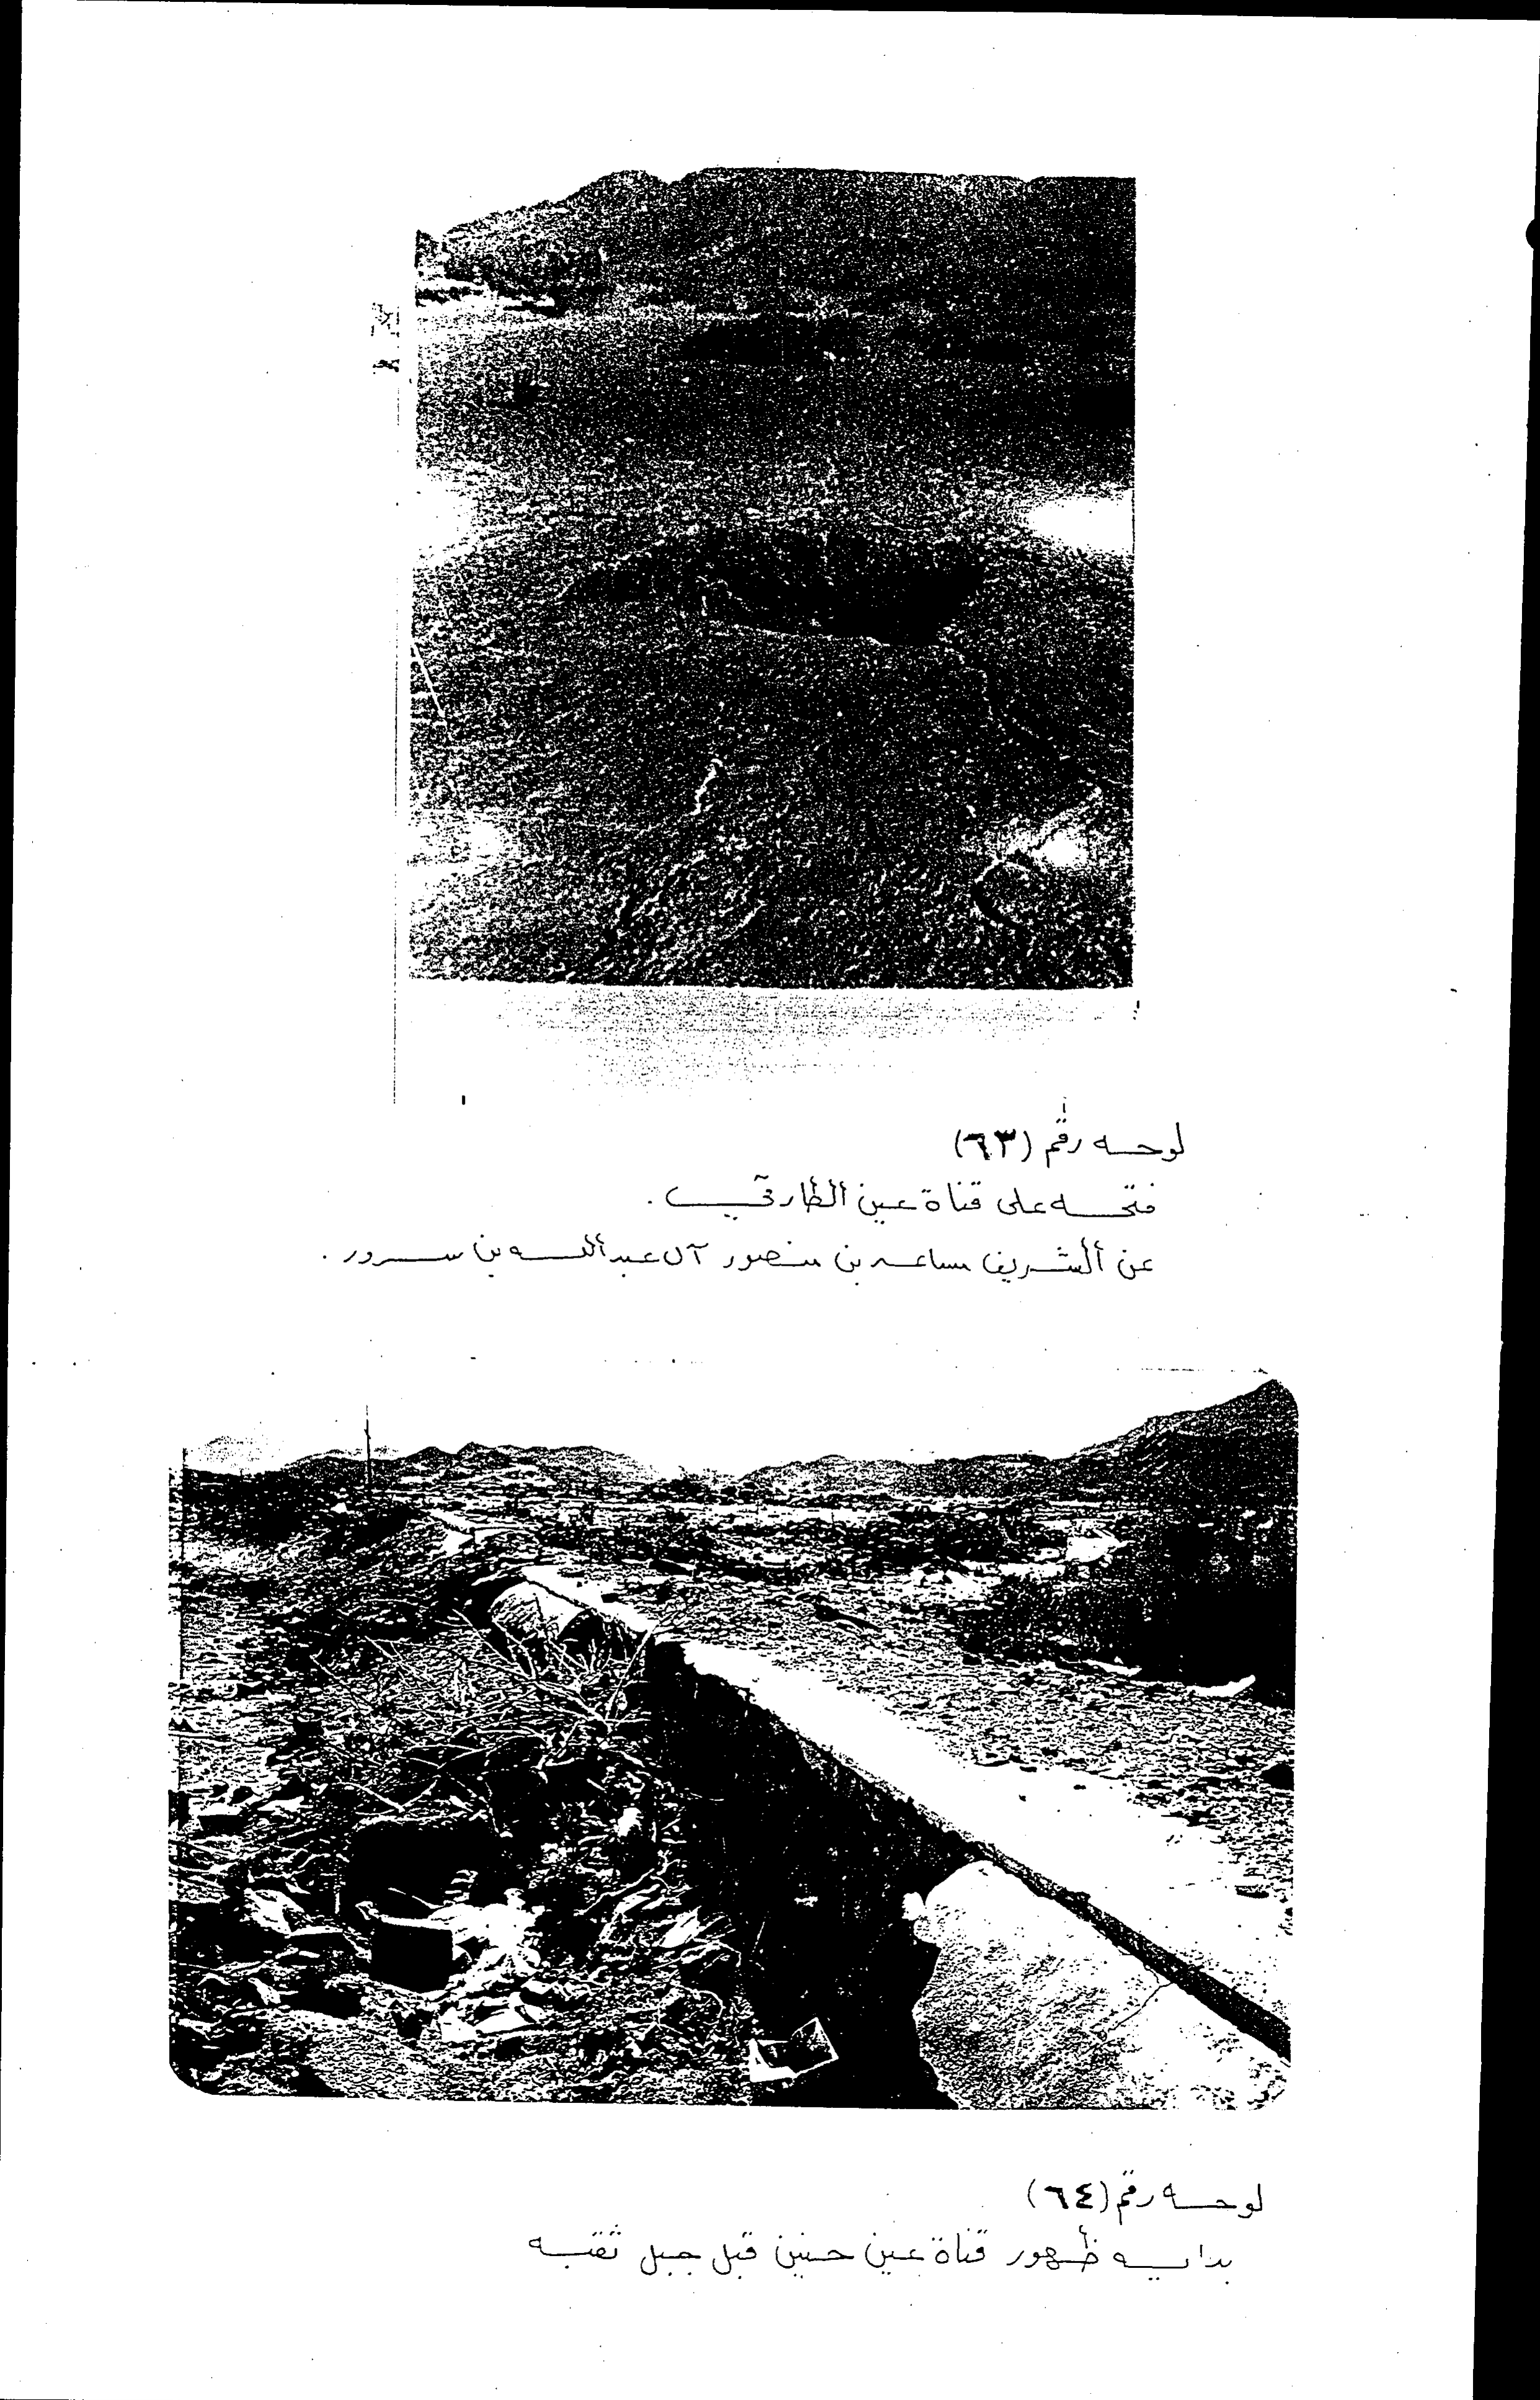 لوحه رقم (٦٣)
فتحه على قناة عين الطارقي .
عن الشريف مساعد بن منصور آل عبدالله بن سرور .
لوحه رقم (٦٤)
بدايه ظهور قناة عين حنين قبل جبل ثقبه